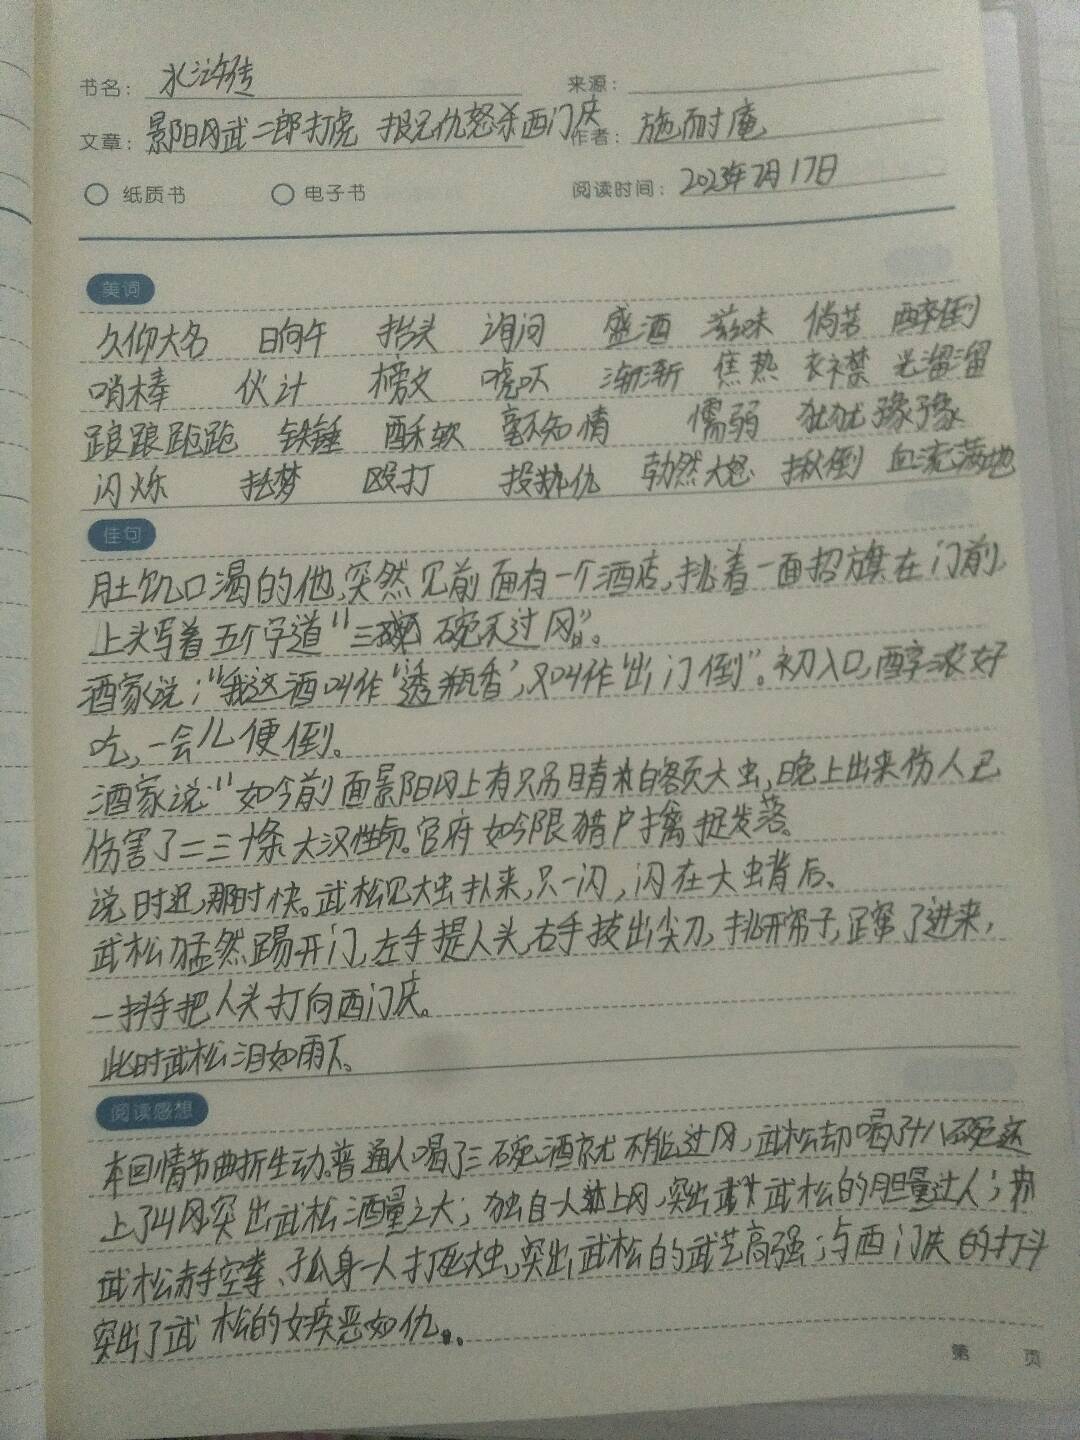 书名： 水浒传 来源：
文章： 景阳冈武二郎打虎 报兄仇怒杀西门庆 作者： 施耐庵
纸质书 电子书 阅读时间： 2023年7月17日
美词
久仰大名 日向午 抬头 询问 盛酒 滋味 倘若 醉倒
哨棒 伙计 榜文 唬吓 渐渐 焦热 衣襟 光溜溜
踉踉跄跄 铁锤 酥软 毫不知情 懦弱 犹犹豫豫
闪烁 托梦 殴打 投掷仇 勃然大怒 揪倒 血流满地
佳句
肚饥口渴的他,突然见前面有一个酒店,挑着一面招旗在门前,
上头写着五个字道“三碗不过冈”。
酒家说：“我这酒叫作‘透瓶香’,又叫作‘出门倒”。初入口,醇浓好
吃,一会儿便倒。
酒家说：“如今前面景阳冈上有只吊睛白额大虫,晚上出来伤人已
伤害了二三十条大汉性命。官府如今限猎户擒捉发落。
说时迟,那时快。武松见大虫扑来,只一闪,闪在大虫背后、
武松猛然踢开门,左手提人头,右手拔出尖刀,挑开帘子,蹿了进来,
一抖手把人头打向西门庆。
此时武松泪如雨下。
阅读感想
本回情节曲折生动。普通人喝了三碗酒就不能过冈,武松却喝了十八碗还
上了冈,突出武松酒量之大；独自一人上冈,突出武松的胆量过人；
武松赤手空拳、孤身一人打死大虫,突出武松的武艺高强；与西门庆的打斗
突出了武松的嫉恶如仇。
第 页